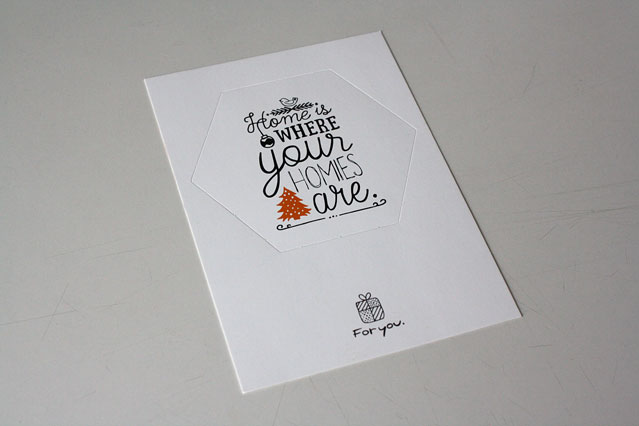 Home is
WHERE
your
HOMIES
are.
For you.